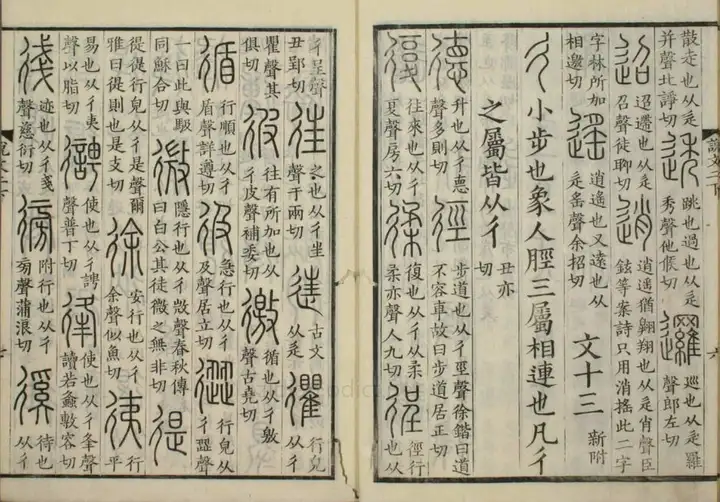 散走也从辵
并聲北諍切
透
跳也過也从辵
秀聲他候切
邏
巡也从辵羅
聲郎左切
迢
迢遰也从辵
召聲徒聊切
逍
逍遙猶翱翔也从辵肖聲臣
鉉等案詩只用消搖此二字
字林所加
相邀切
遙
逍遙也又遠也从
辵䍃聲余招切
文十三
新附
彳
小步也象人脛三屬相連也凡彳
之屬皆从彳
丑亦
切
德
升也从彳悳
聲多則切
徑
步道也从彳巠聲徐鍇曰道
不容車故曰步道居正切
復
往來也从彳
复聲房六切
復也从彳从柔
柔亦聲人九切
徎
徑行
也从
彳呈聲
丑郢切
往
之也从彳㞷
聲于兩切
古文
从辵
忂
行皃
从彳
瞿聲其
俱切
彼
往有所加也从
彳皮聲補委切
徼
循也从彳敫
聲古堯切
循
行順也从彳
盾聲詳遵切
彶
急行也从彳
及聲居立切
𢕬
行皃从
彳歰聲
一曰此與馺
同穌合切
微
隱行也从彳𢼸聲春秋傳
曰白公其徒微之無非切
徥
徥徥行皃从彳是聲爾
雅曰徥則也是支切
徐
安行也从彳
余聲似魚切
行
平
易也从彳夷
聲以脂切
使也从彳
聲普丁切
使也从彳夆聲
讀若螽敷容切
迹也从彳戔
聲慈衍切
徬
附行也从彳
㫄聲蒲浪切
徯
待也
从彳